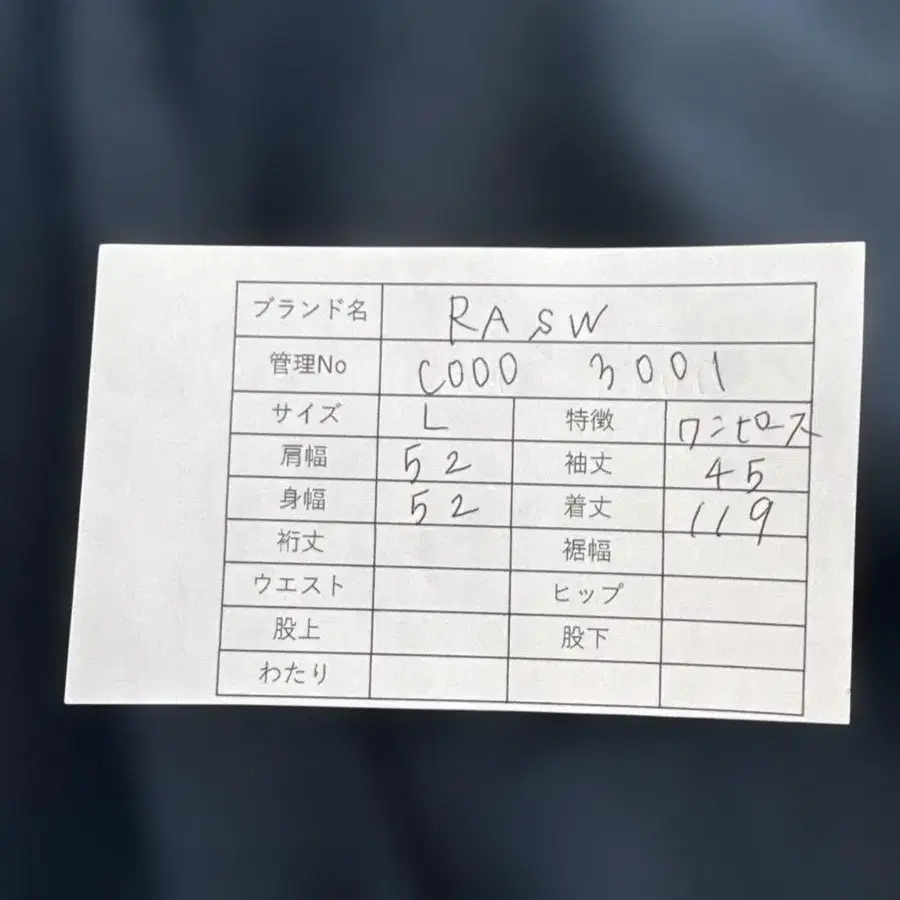 ブランド名 RASW
管理No C000 3001
サイズ L 特徴 ワンピース
肩幅 52 袖丈 45
身幅 52 着丈 119
裄丈 裾幅
ウエスト ヒップ
股上 股下
わたり